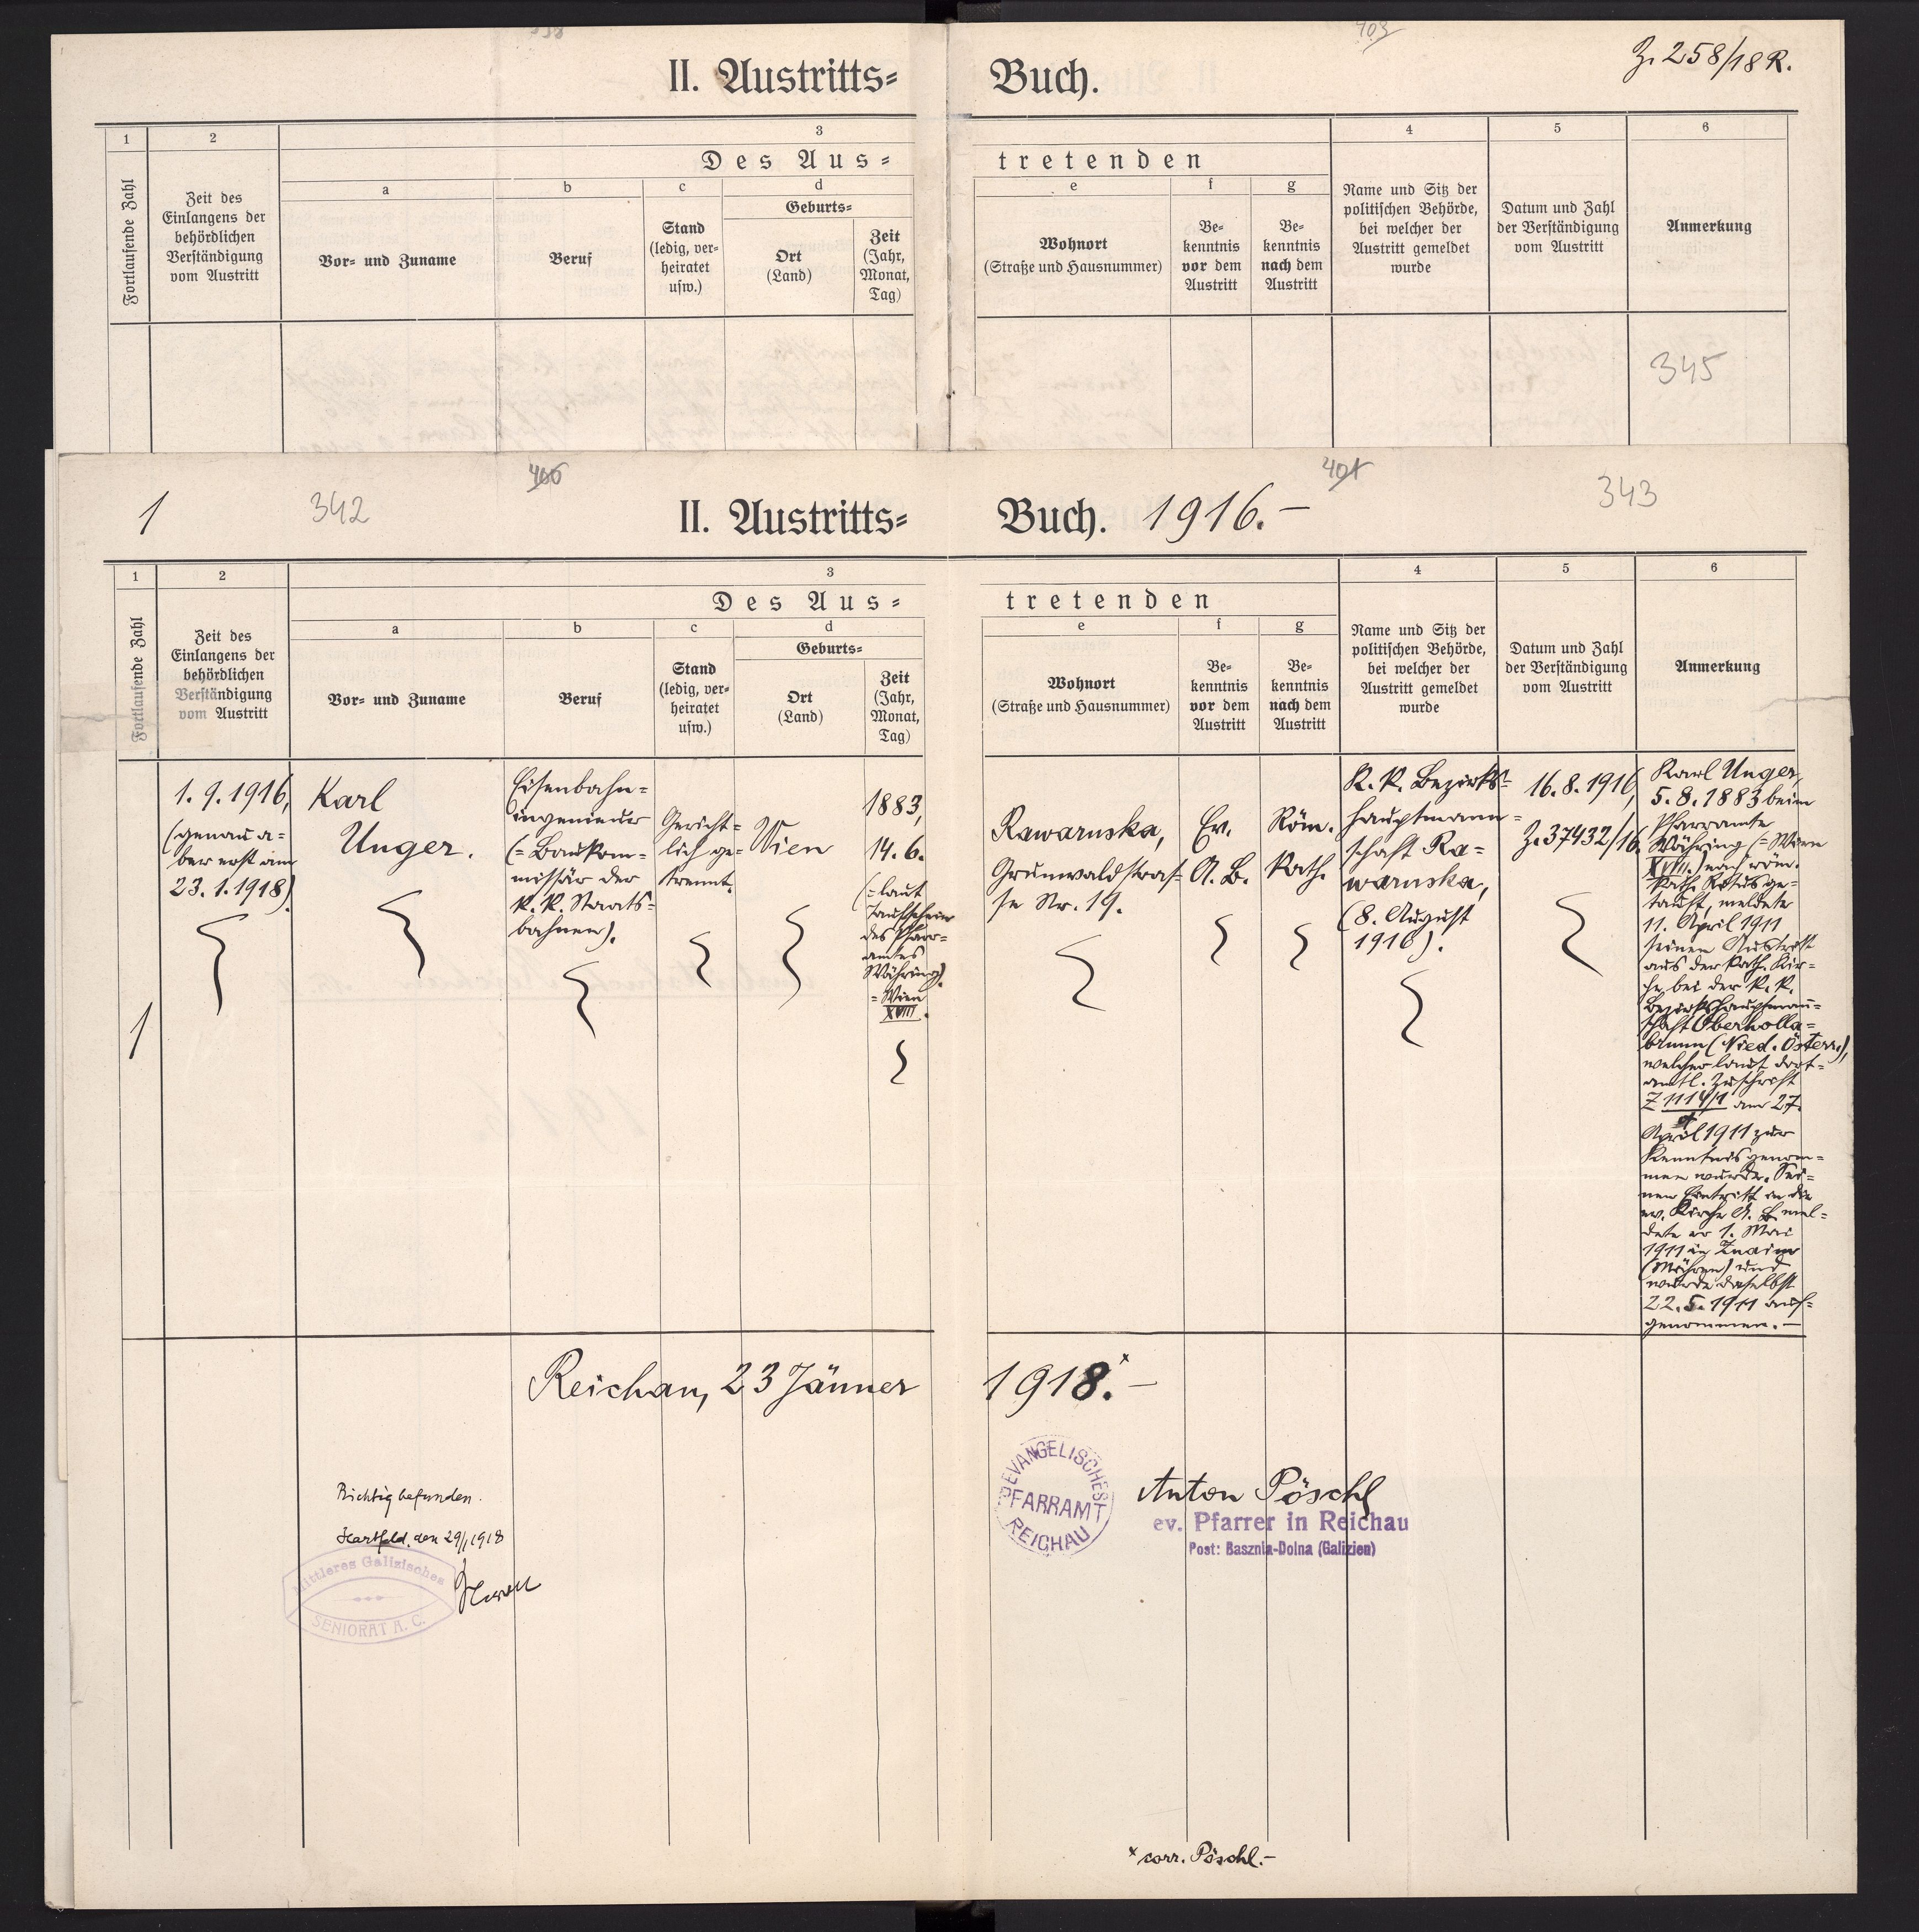 403
Z. 258/18 R.
II. Austritts= Buch.
1
2
3
4
5
6
Des Aus= tretenden
Fortlaufende Zahl
Zeit des
Einlangens der
behördlichen
Verständigung
vom Austritt
a
Vor- und Zuname
b
Beruf
c
Stand
(ledig, ver-
heiratet
usw.)
d
Geburts=
Ort
(Land)
Zeit
(Jahr,
Monat,
Tag)
e
Wohnort
(Straße und Hausnummer)
f
Be-
kenntnis
vor dem
Austritt
g
Be-
kenntnis
nach dem
Austritt
Name und Sitz der
politischen Behörde,
bei welcher der
Austritt gemeldet
wurde
Datum und Zahl
der Verständigung
vom Austritt
Anmerkung
345
1
342
400
401
343
II. Austritts= Buch. 1916.-
1
2
3
4
5
6
Des Aus= tretenden
Fortlaufende Zahl
Zeit des
Einlangens der
behördlichen
Verständigung
vom Austritt
a
Vor- und Zuname
b
Beruf
c
Stand
(ledig, ver-
heiratet
usw.)
d
Geburts=
Ort
(Land)
Zeit
(Jahr,
Monat,
Tag)
e
Wohnort
(Straße und Hausnummer)
f
Be-
kenntnis
vor dem
Austritt
g
Be-
kenntnis
nach dem
Austritt
Name und Sitz der
politischen Behörde,
bei welcher der
Austritt gemeldet
wurde
Datum und Zahl
der Verständigung
vom Austritt
Anmerkung
1
1.9.1916,
(genau a=
ber erst am
23.1.1918).
Karl
Unger.
Eisenbahn=
ingenieur
(= Baukom=
missär der
k. k. Staats=
bahnen).
Gericht=
lich ge=
trennt.
Wien
1883,
14.6.
(= laut
Taufschein
des Pfarr=
amtes
Währing)
= Wien
XVIII.
Rawaruska,
Grunwaldstras=
se Nr. 19.
Ev.
A. B.
Röm.
kath.
K. k. Bezirks=
hauptmann=
schaft Ra=
waruska,
(8. August
1916).
16.8.1916,
Z. 37432/16.
Karl Unger,
5.8.1883 beim
Pfarramte
Währing (= Wien
XVIII.) nach röm.
kath. Ritus ge=
tauft, meldete
11. April 1911
seinen Austritt
aus der kath. Kir=
che bei der k. k.
Bezirkshauptman=
schaft Oberholla=
brunn (Nied. Österr.),
welcher laut dort=
amtl. Zuschrift
Z 1114/1 am 27.
April 1911 zur
Kenntnis genom=
men wurde. Sei=
nen Eintritt in die
ev. Kirche A. B. mel=
dete er 1. Mai
1911 in Znaim
(Mähren) und
wurde daselbst
22.5.1911 auf=
genommen.-
Reichau, 23 Jänner 1918.× -
EVANGELISCHES
PFARRAMT
REICHAU
Anton Pöschl
ev. Pfarrer in Reichau
Post: Basznia-Dolna (Galizien)
Richtig befunden.
Hartfeld, den 29/1 1918
Mittleres Galizisches
SENIORAT A. C.
× corr. Pöschl.-